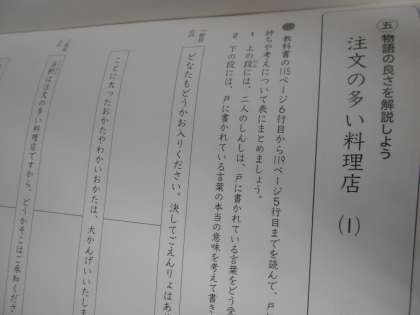 ㊄ 物語の良さを解説しよう
注文の多い料理店 (1)
教科書の115ページ6行目から119ページ5行目までを読んで、戸
持ちや考えについて表にまとめましょう。
1 上の段には、二人のしんしは、戸に書かれている言葉をどう受
2 下の段には、戸に書かれている言葉の本当の意味を考えて書き
どなたもどうかお入りください。決してごえんりょはあ
ことに太ったおかたやわかいおかたは、大かんげいいたしま
当軒は注文の多い料理店ですから、どうかそこはご承知くださ